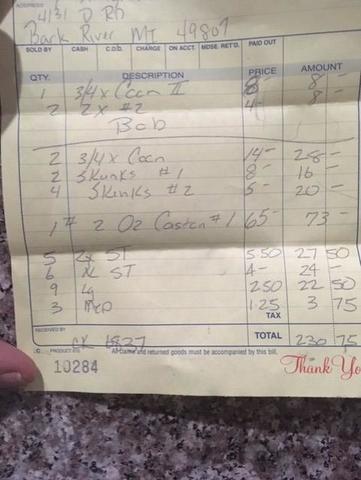 ADDRESS
4131 D Rd
Bark River MI 49807
SOLD BY CASH C.O.D. CHARGE ON ACCT. MDSE. RET'D. PAID OUT
QTY. DESCRIPTION PRICE AMOUNT
1 3/4 x Coon II 8- 8-
2 2x #2 4- 8-
Bob
2 3/4 x Coon 14- 28-
2 Skunks #1 8- 16-
4 Skunks #2 5- 20-
1# 2 Oz Castor #1 65- 73-
5 2x ST 5 50 27 50
6 XL ST 4- 24-
9 Lg 2 50 22 50
3 Med 1 25 3 75
TAX
RECEIVED BY
TOTAL 230 75
All claims and returned goods must be accompanied by this bill.
10284
Thank Yo